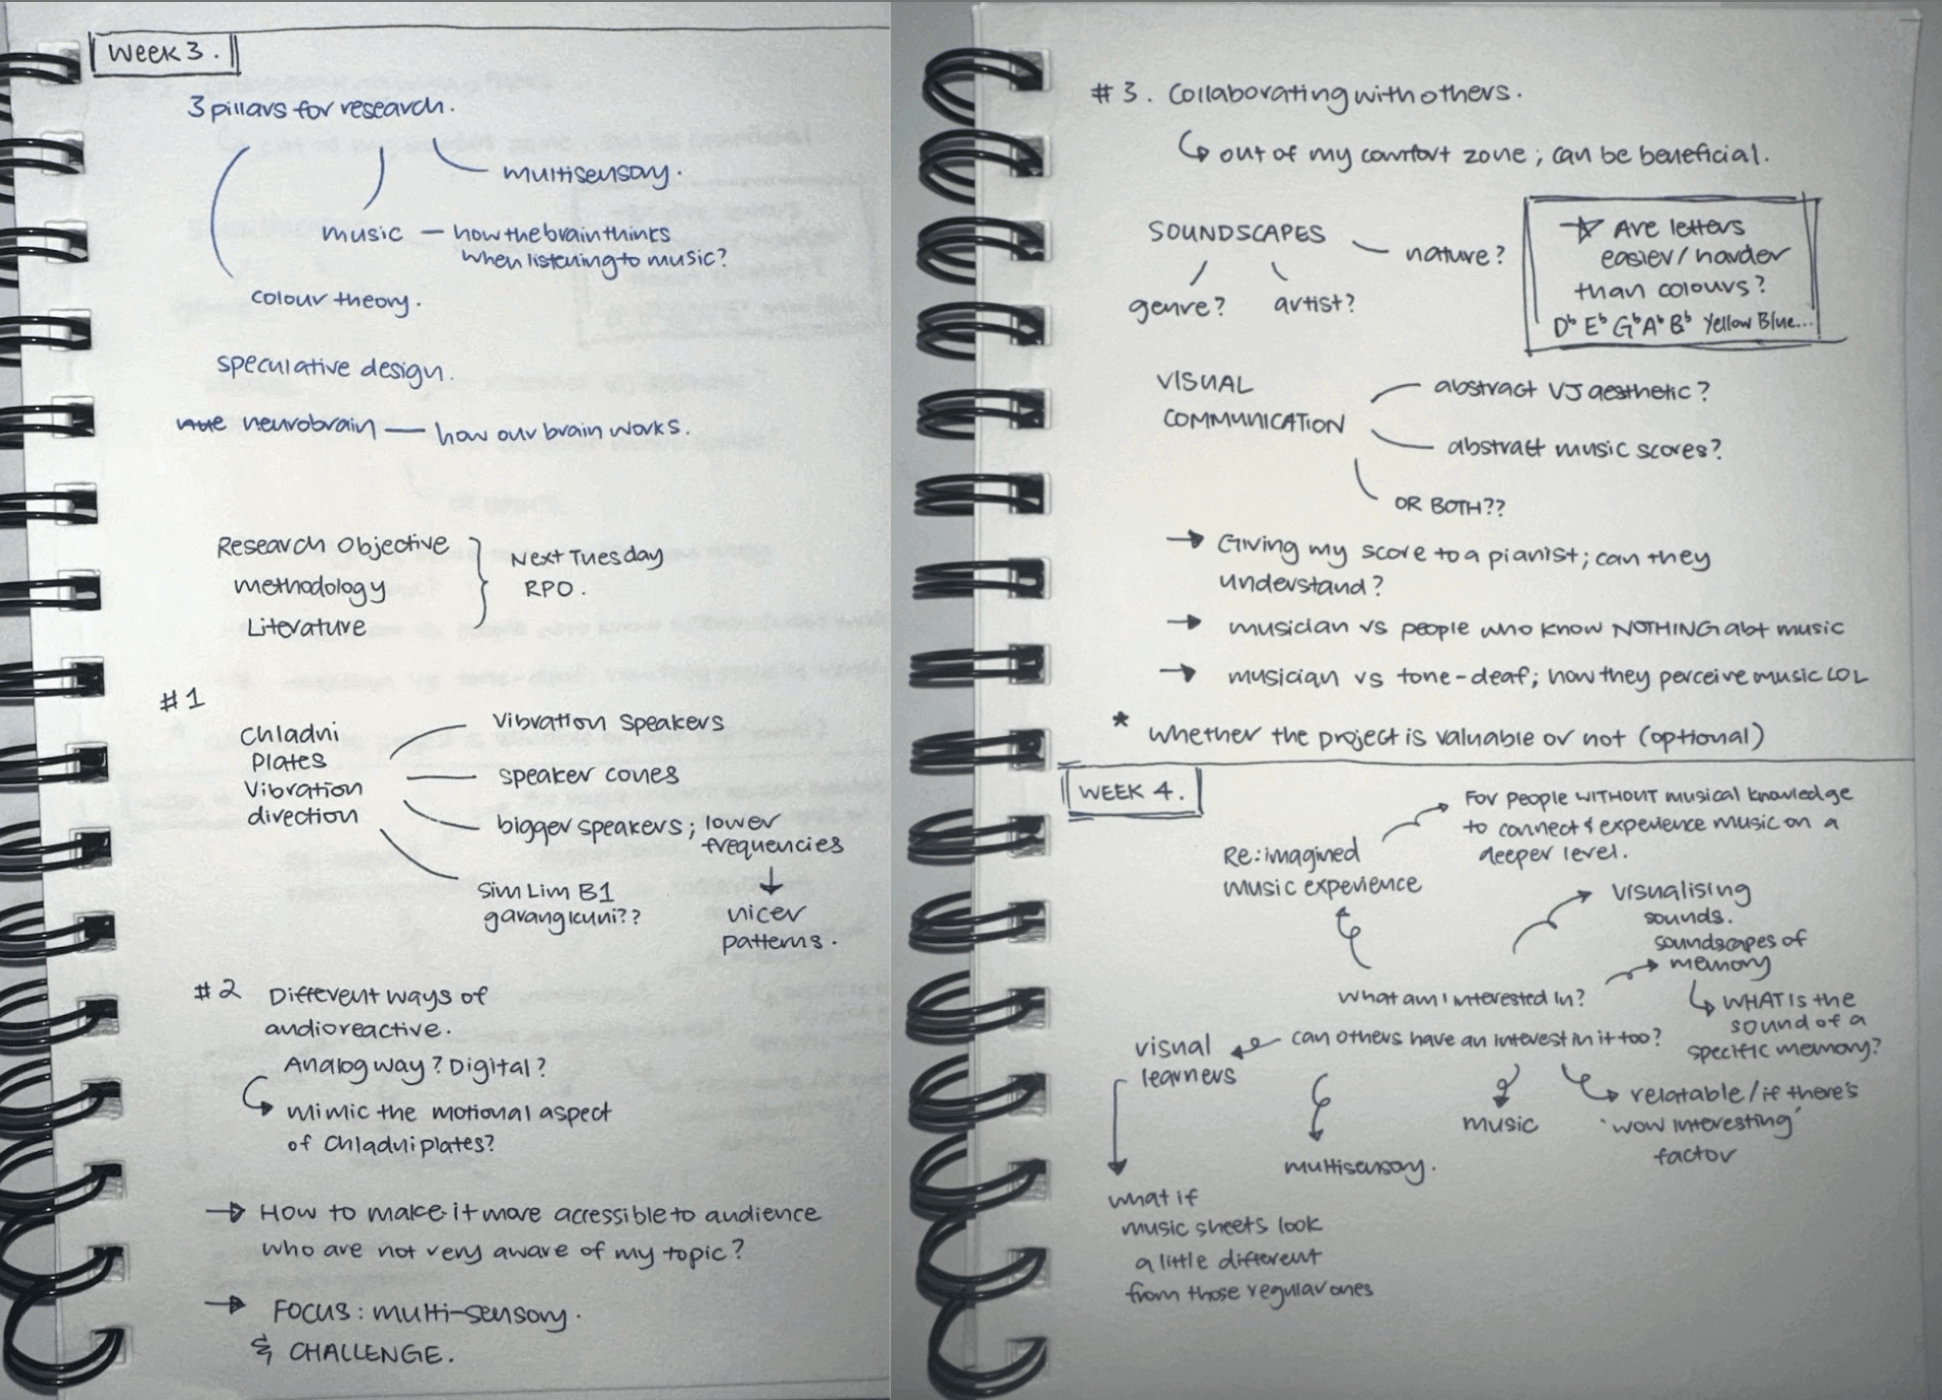 Week 3.
3 pillars for research.
multisensory.
music — how the brain thinks
when listening to music?
colour theory.
speculative design.
neurobrain — how our brain works.
Research Objective
methodology
Literature
Next Tuesday
RPO.
#1
Chladni
Plates
Vibration
direction
Vibration Speakers
speaker cones
bigger speakers; lower
frequencies
nicer
patterns.
Sim Lim B1
garang kuni??
#2 Different ways of
audioreactive.
Analog way? Digital?
mimic the motional aspect
of Chladni plates?
→ How to make it more accessible to audience
who are not very aware of my topic?
→ FOCUS: multi-sensory.
& CHALLENGE.
#3. Collaborating with others.
out of my comfort zone; can be beneficial.
SOUNDSCAPES
nature?
genre? artist?
☆ Are letters
easier/harder
than colours?
D♭ E♭ G♭ A♭ B♭ Yellow Blue...
VISUAL
COMMUNICATION
abstract VJ aesthetic?
abstract music scores?
OR BOTH??
→ Giving my score to a pianist; can they
understand?
→ musician vs people who know NOTHING abt music
→ musician vs tone-deaf; how they perceive music LOL
* whether the project is valuable or not (optional)
WEEK 4.
For people WITHOUT musical knowledge
to connect & experience music on a
deeper level.
Re:imagined
music experience
visualising
sounds.
soundscapes of
memory
WHAT IS the
sound of a
specific memory?
What am I interested in?
can others have an interest in it too?
visual
learners
multisensory.
music
relatable/if there's
'wow interesting'
factor
what if
music sheets look
a little different
from those regular ones